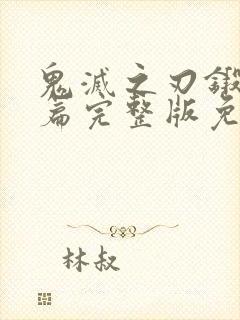 鬼滅之刃鍛
篇完整版免
林叔